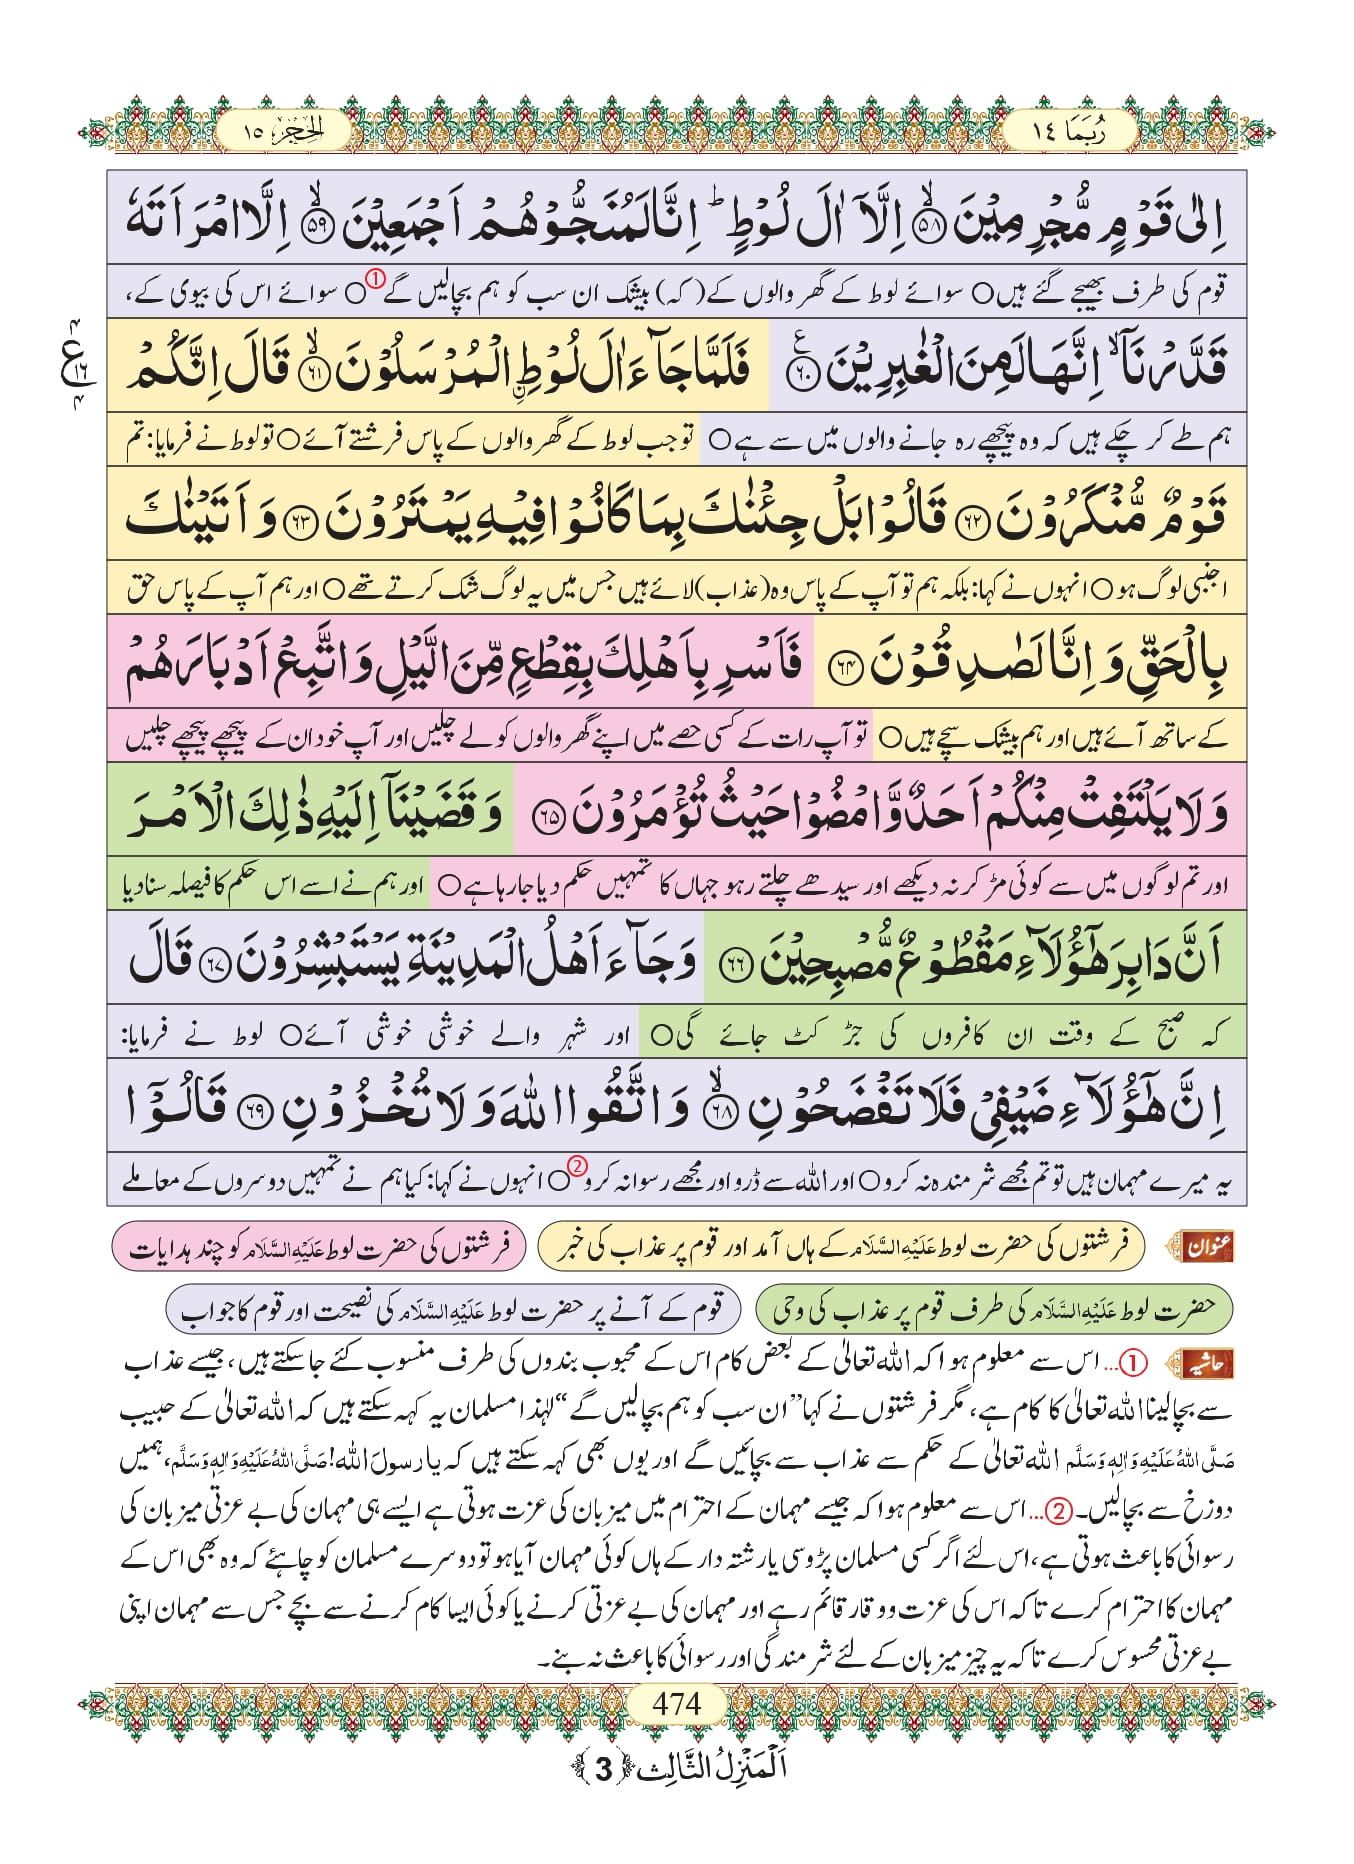 رُبَمَا ١٤
الحِجْر ١٥
اِلٰى قَوْمٍ مُّجْرِمِيْنَۙ ﴿۵۸﴾ اِلَّاۤ اٰلَ لُوْطٍؕ اِنَّا لَمُنَجُّوْهُمْ اَجْمَعِيْنَۙ ﴿۵۹﴾ اِلَّا امْرَاَتَهٗ
قوم کی طرف بھیجے گئے ہیں○ سوائے لوط کے گھر والوں کے( کہ) بیشک ان سب کو ہم بچالیں گے①○ سوائے اس کی بیوی کے،
قَدَّرْنَاۤۙ اِنَّهَا لَمِنَ الْغٰبِرِيْنَ ﴿۶۰﴾ع فَلَمَّا جَآءَ اٰلَ لُوْطِ ِۨالْمُرْسَلُوْنَۙ ﴿۶۱﴾ قَالَ اِنَّكُمْ
ع ١٦
ہم طے کر چکے ہیں کہ وہ پیچھے رہ جانے والوں میں سے ہے○ تو جب لوط کے گھر والوں کے پاس فرشتے آئے○ تو لوط نے فرمایا: تم
قَوْمٌ مُّنْكَرُوْنَ ﴿۶۲﴾ قَالُوْا بَلْ جِئْنٰكَ بِمَا كَانُوْا فِيْهِ يَمْتَرُوْنَ ﴿۶۳﴾ وَ اَتَيْنٰكَ
اجنبی لوگ ہو○ انہوں نے کہا: بلکہ ہم تو آپ کے پاس وہ (عذاب) لائے ہیں جس میں یہ لوگ شک کرتے تھے○ اور ہم آپ کے پاس حق
بِالْحَقِّ وَ اِنَّا لَصٰدِقُوْنَ ﴿۶۴﴾ فَاَسْرِ بِاَهْلِكَ بِقِطْعٍ مِّنَ الَّيْلِ وَ اتَّبِعْ اَدْبَارَهُمْ
کے ساتھ آئے ہیں اور ہم بیشک سچے ہیں○ تو آپ رات کے کسی حصے میں اپنے گھر والوں کو لے چلیں اور آپ خود ان کے پیچھے پیچھے چلیں
وَ لَا يَلْتَفِتْ مِنْكُمْ اَحَدٌ وَّ امْضُوْا حَيْثُ تُؤْمَرُوْنَ ﴿۶۵﴾ وَ قَضَيْنَاۤ اِلَيْهِ ذٰلِكَ الْاَمْرَ
اور تم لوگوں میں سے کوئی مڑ کر نہ دیکھے اور سیدھے چلتے رہو جہاں کا تمہیں حکم دیا جارہا ہے○ اور ہم نے اسے اس حکم کا فیصلہ سنادیا
اَنَّ دَابِرَ هٰۤؤُلَآءِ مَقْطُوْعٌ مُّصْبِحِيْنَ ﴿۶۶﴾ وَ جَآءَ اَهْلُ الْمَدِيْنَةِ يَسْتَبْشِرُوْنَ ﴿۶۷﴾ قَالَ
کہ صبح کے وقت ان کافروں کی جڑ کٹ جائے گی○ اور شہر والے خوشی خوشی آئے○ لوط نے فرمایا:
اِنَّ هٰۤؤُلَآءِ ضَيْفِيْ فَلَا تَفْضَحُوْنِۙ ﴿۶۸﴾ وَ اتَّقُوا اللّٰهَ وَ لَا تُخْزُوْنِ ﴿۶۹﴾ قَالُوْۤا
یہ میرے مہمان ہیں تو تم مجھے شرمندہ نہ کرو○ اور اللہ سے ڈرو اور مجھے رسوا نہ کرو②○ انہوں نے کہا: کیا ہم نے تمہیں دوسروں کے معاملے
عنوان فرشتوں کی حضرت لوط عَلَيْهِ السَّلَام کے ہاں آمد اور قوم پر عذاب کی خبر فرشتوں کی حضرت لوط عَلَيْهِ السَّلَام کو چند ہدایات
حضرت لوط عَلَيْهِ السَّلَام کی طرف قوم پر عذاب کی وحی قوم کے آنے پر حضرت لوط عَلَيْهِ السَّلَام کی نصیحت اور قوم کا جواب
حاشیہ ①... اس سے معلوم ہوا کہ اللہ تعالیٰ کے بعض کام اس کے محبوب بندوں کی طرف منسوب کئے جاسکتے ہیں، جیسے عذاب
سے بچالینا اللہ تعالیٰ کا کام ہے، مگر فرشتوں نے کہا”ان سب کو ہم بچالیں گے“ لہٰذا مسلمان یہ کہہ سکتے ہیں کہ اللہ تعالیٰ کے حبیب
صَلَّی اللہُ عَلَیْہِ وَاٰلِہٖ وَسَلَّم اللہ تعالیٰ کے حکم سے عذاب سے بچائیں گے اور یوں بھی کہہ سکتے ہیں کہ یارسولَ اللہ! صَلَّی اللہُ عَلَیْہِ وَاٰلِہٖ وَسَلَّم، ہمیں
دوزخ سے بچالیں۔ ②... اس سے معلوم ہوا کہ جیسے مہمان کے احترام میں میزبان کی عزت ہوتی ہے ایسے ہی مہمان کی بے عزتی میزبان کی
رسوائی کا باعث ہوتی ہے، اس لئے اگر کسی مسلمان پڑوسی یا رشتہ دار کے ہاں کوئی مہمان آیا ہو تو دوسرے مسلمان کو چاہئے کہ وہ بھی اس کے
مہمان کا احترام کرے تاکہ اس کی عزت و وقار قائم رہے اور مہمان کی بے عزتی کرنے یا کوئی ایسا کام کرنے سے بچے جس سے مہمان اپنی
بے عزتی محسوس کرے تاکہ یہ چیز میزبان کے لئے شرمندگی اور رسوائی کا باعث نہ بنے۔
474
اَلْمَنْزِلُ الثَّالِث ﴿3﴾